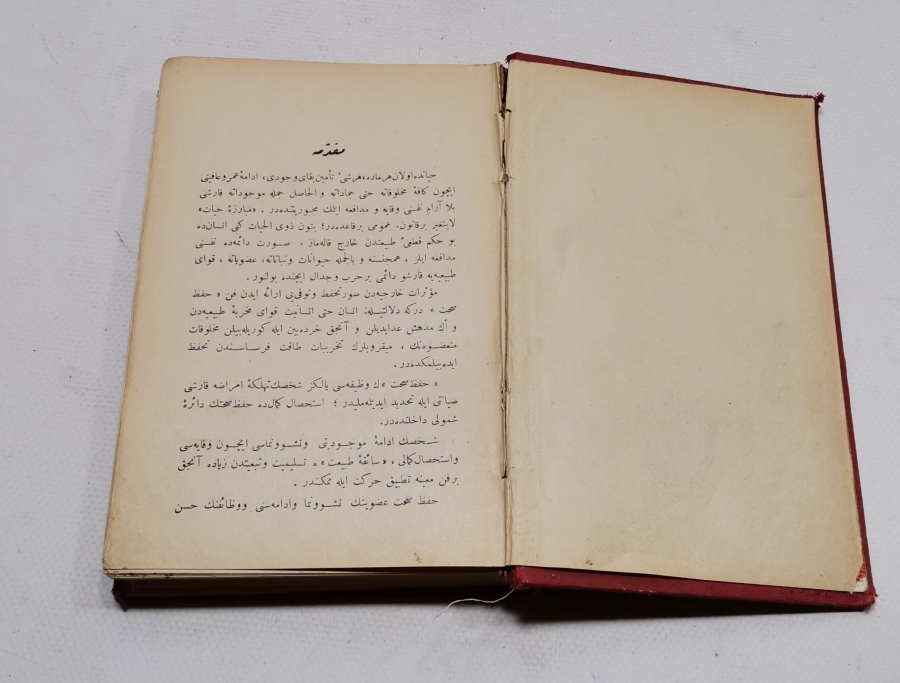 مقدمه
حیاتده اولان هر ماده، هر شئ تأمین بقای وجودی، ادامۀ عمر و عافیتی
ایچون كافۀ مخلوقاته حتی جماداته و الحاصل جمله موجوداته قارشی
بلا آرام نفسنی وقایه و مدافعه ایتمك مجبوریتنده‌در . «مبارزۀ حیات»
لایتغیر بر قانون، عمومی بر قاعده‌در؛ بتون ذوی الحیات كبی انسان‌ده
بو حكم قطعئ طبیعتدن خارج قاله‌ماز. صورت دائمه‌ده نفسنی
مدافعه ایلر ، همجنسنه و بالجمله حیوانات و نباتاته، عضویاته ، قوای
طبیعیه‌یه قارشو دائمی بر حرب و جدال ایچنده بولنور .
مؤثرات خارجیه‌دن صورتحفظ و توقی‌یی ارائه ایدن فن « حفظ
صحت » دركه دلالتیله انسان حتی انسانیت قوای مخربۀ طبیعیه‌دن
و اك مدهش عد ایدیلن و آنجق خرده‌بین ایله كوریله‌بیلن مخلوقات
متعضونك ، میقروبلرك تخریبات طاقت فرساسندن تحفظ
ایده‌بیلمكده‌در .
« حفظ صحت »ك وظیفه‌سی یالكز شخصك تهلكۀ امراضه قارشی
صیانتی ایله تحدید ایدیله‌ملیدر ؛ استحصال كمال‌ده حفظ صحتك دائرۀ
شمولی داخلنده‌در.
شخصك ادامۀ موجودیتی و نشو و نماسی ایچون وقایه‌سی
و استحصال كمالی ، «سائقۀ طبیعت» ه تسلیمیت و تبعیتدن زیاده آنجق
بر فن معینه تطبیق حركت ایله ممكندر .
حفظ صحت عضویتك نشو و نما و ادامه‌سی و وظائفنك حسن